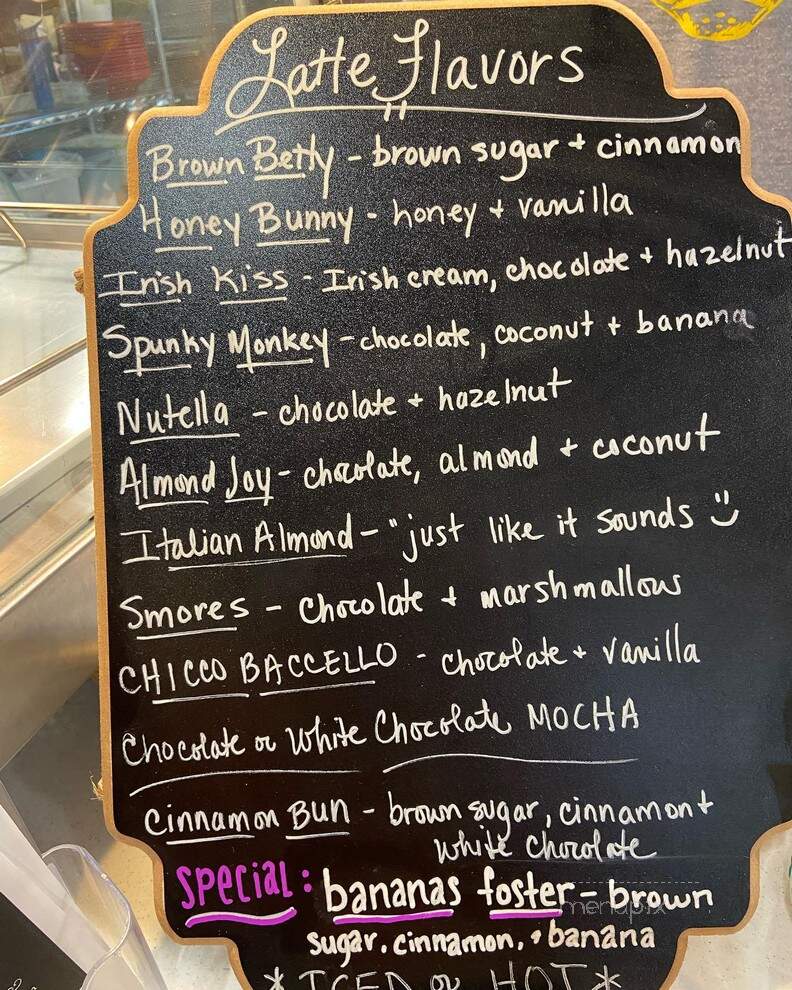 Latte Flavors
Brown Betty - brown sugar + cinnamon
Honey Bunny - honey + vanilla
Irish Kiss - Irish cream, chocolate + hazelnut
Spunky Monkey - chocolate, coconut + banana
Nutella - chocolate + hazelnut
Almond Joy - chocolate, almond + coconut
Italian Almond - "just like it sounds
Smores - chocolate + marshmallows
CHICCO BACCELLO - chocolate + vanilla
Chocolate or White Chocolate MOCHA
Cinnamon BUN - brown sugar, cinnamon +
white chocolate
Special: bananas foster - brown
sugar, cinnamon, + banana
menupix
*ICED or HOT*